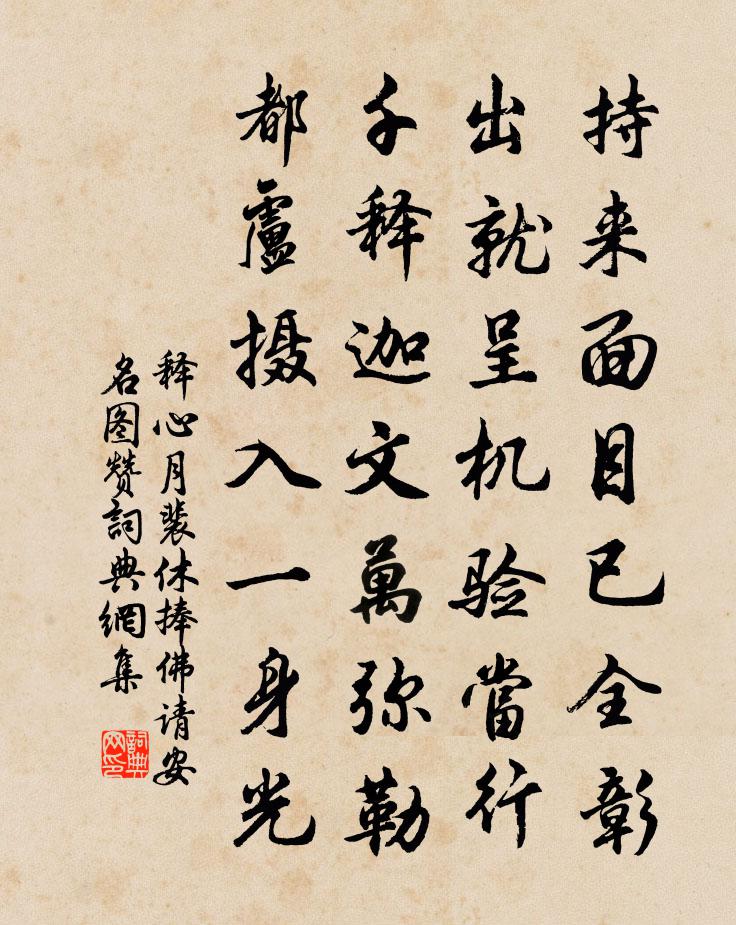 持来面目已全彰
出就呈机验當行
千释迦文萬弥勒
都盧摄入一身光
释心月裴休捧佛请安
名图赞詞典網集
詞典網印